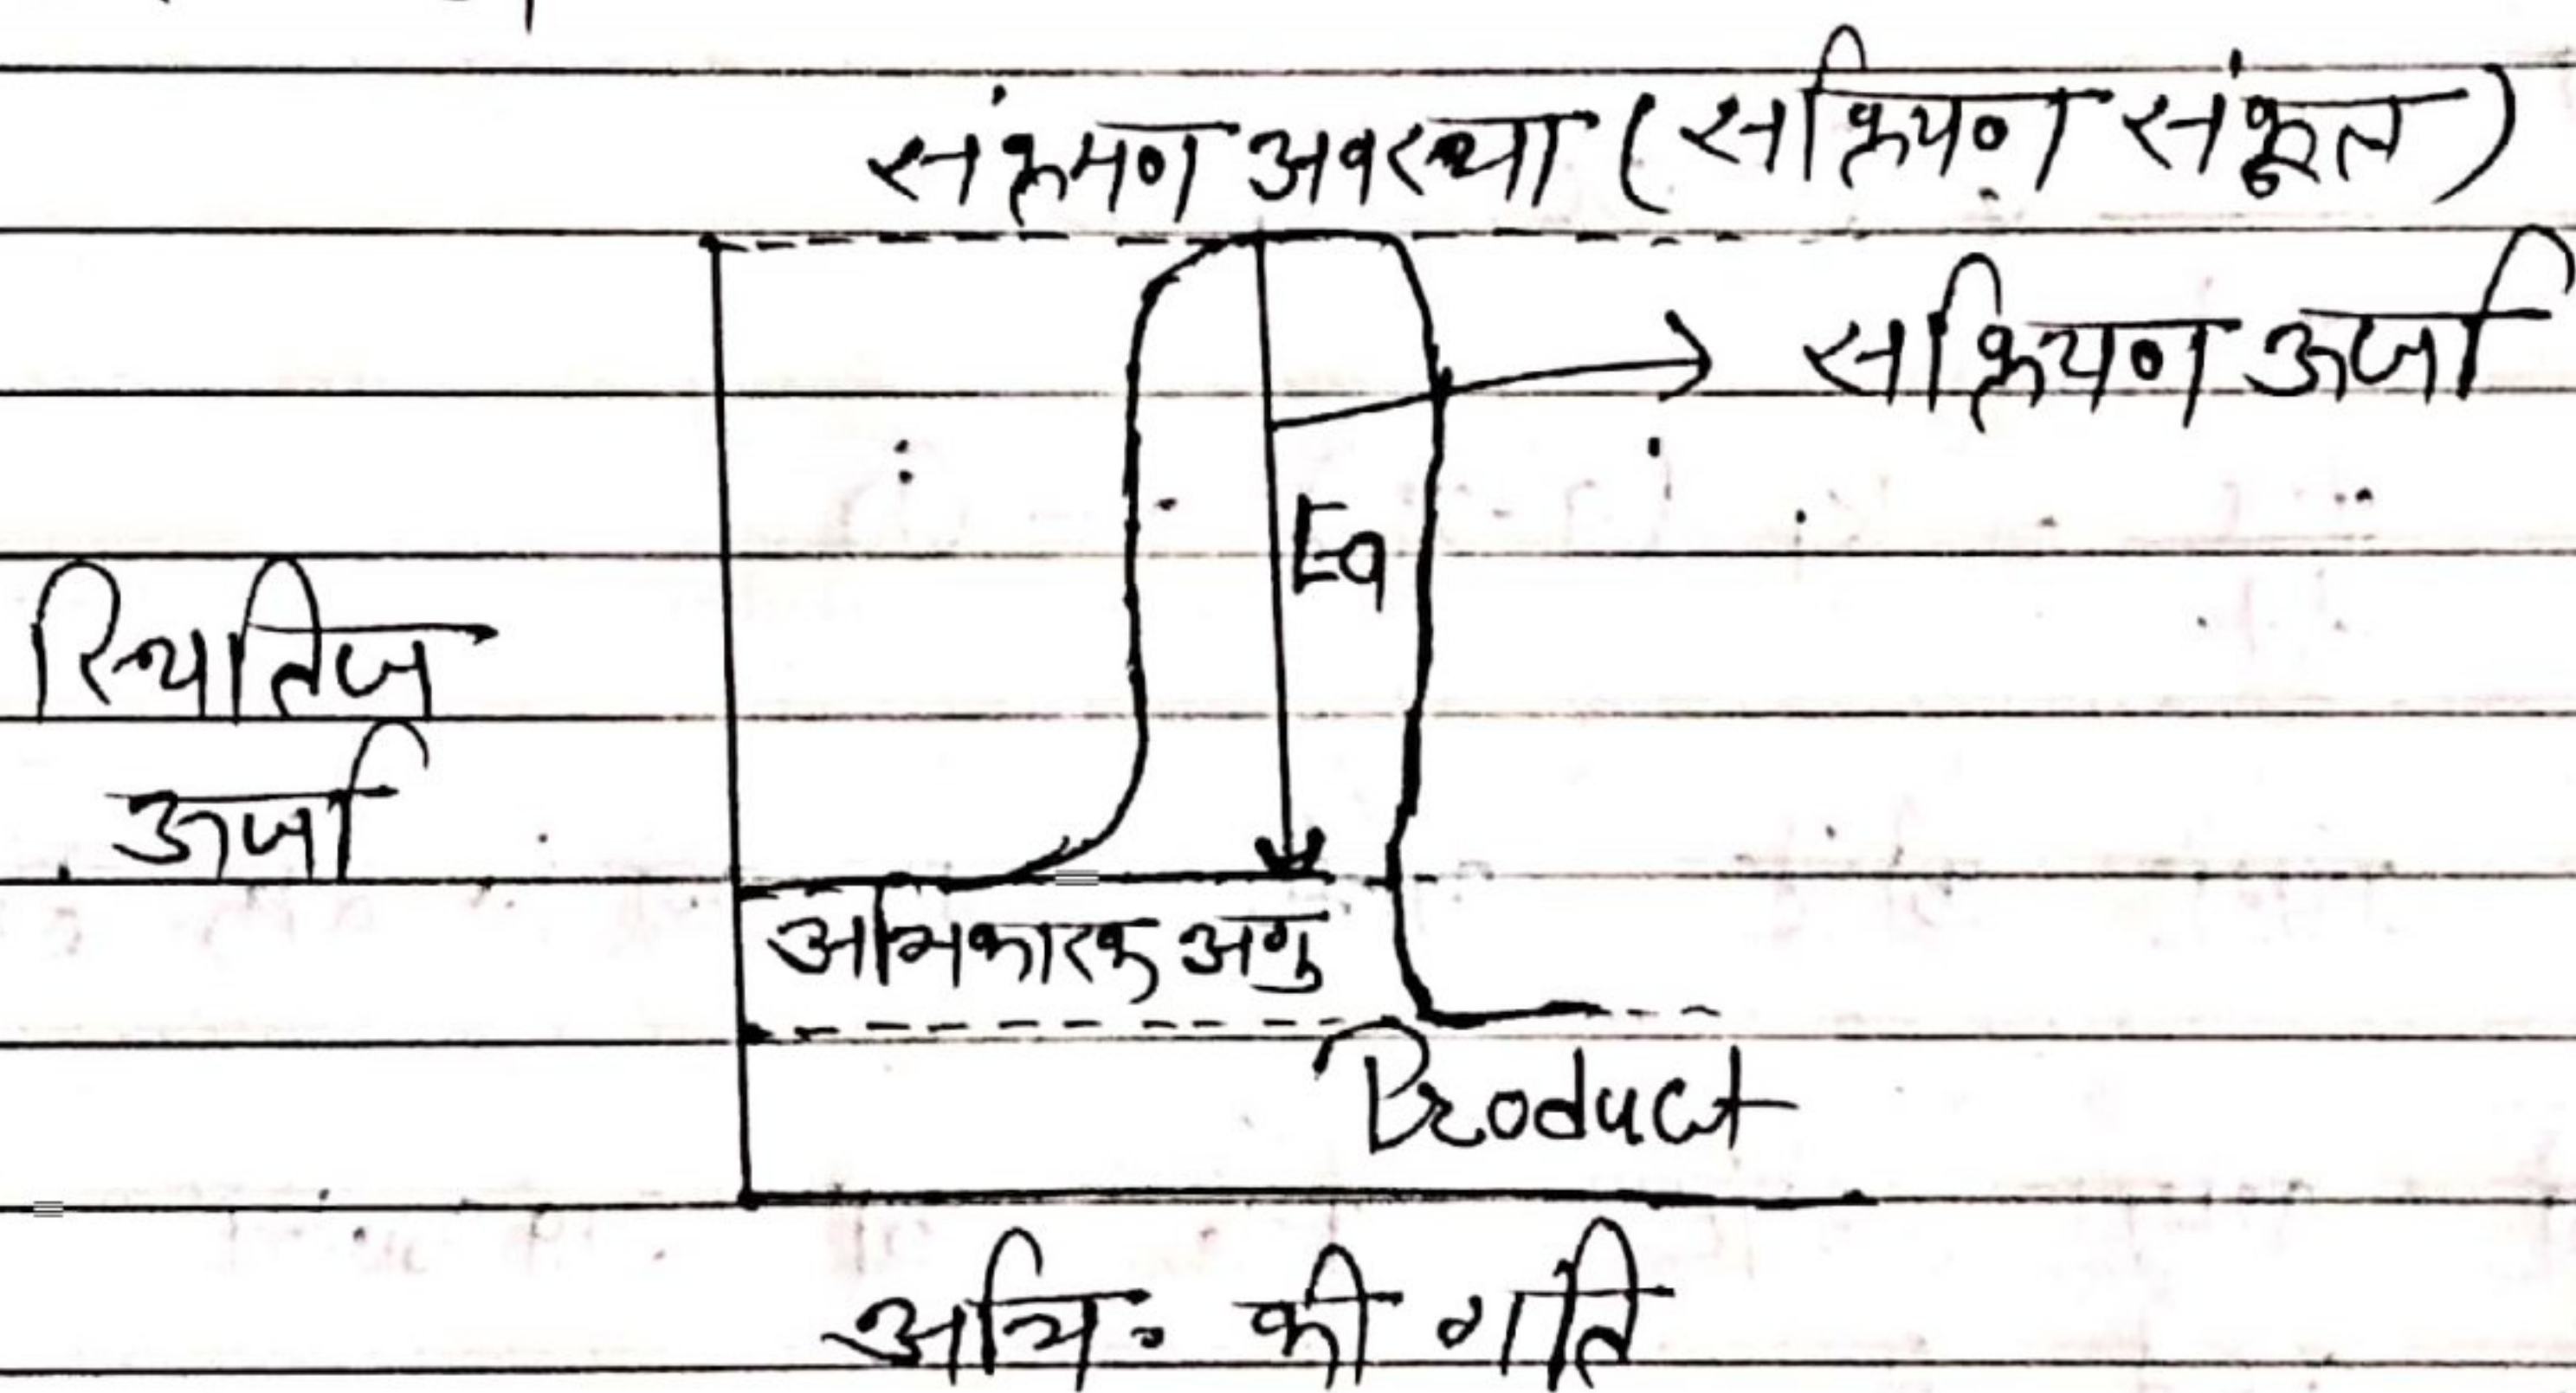 संक्रमण अवस्था (सक्रियण संकुल)
सक्रियण ऊर्जा
Ea
स्थितिज
ऊर्जा
अभिकारक अणु
Product
अभि॰ की गति